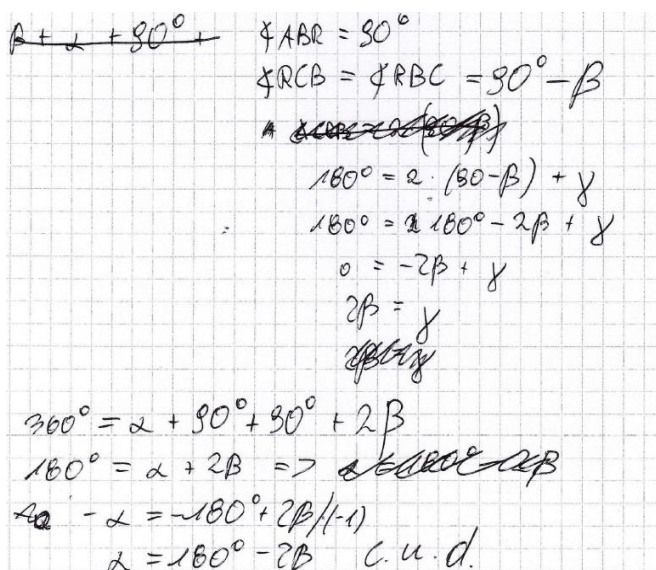 β + α + 90° +
∢ABR = 90°
∢RCB = ∢RBC = 90° - β
180° = 2 · (90 - β) + γ
180° = 180° - 2β + γ
0 = -2β + γ
2β = γ
360° = α + 90° + 90° + 2β
180° = α + 2β =>
- α = -180° + 2β /(-1)
α = 180° - 2β c.u.d.